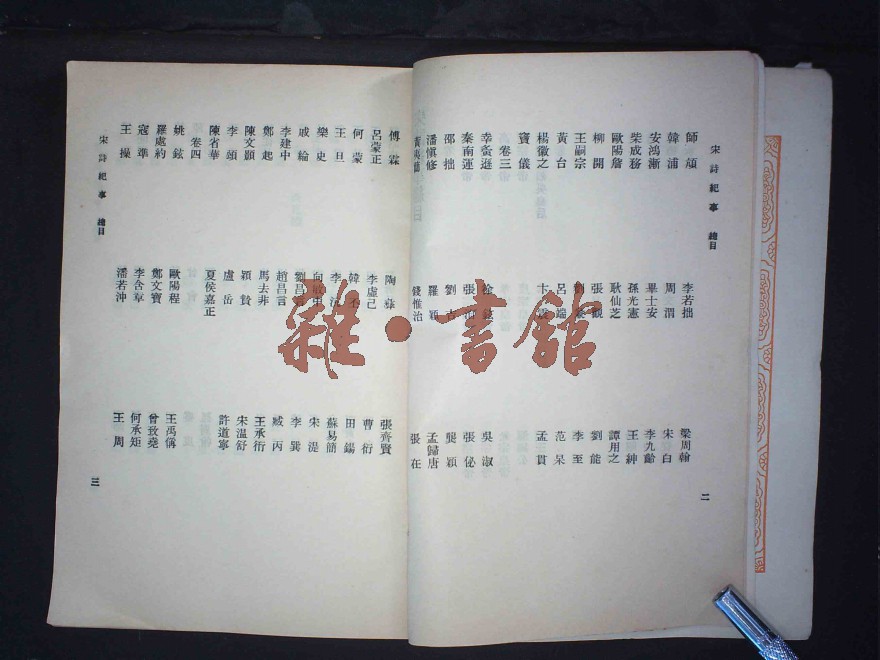 宋詩紀事 總目
師頏 李若拙 梁周翰
韓浦 周渭 宋白
安鴻漸 畢士安 李九齡
柴成務 孫光憲 王紳
歐陽詹 耿仙芝 譚用之
柳開 張觀 劉能
王嗣宗 李至
黃台 呂端 范杲
楊徽之 卞震 孟貫
竇儀
卷三
幸夤遜 徐鉉 吳淑
秦南運 張 張佖
邵拙 劉吉 龔穎
潘慎修 羅穎 孟歸唐
黃夷簡 錢惟治 張在
二
傅霖 陶 張齊賢
呂蒙正 李虛己 曹衍
何蒙 韓丕 田錫
王旦 李沆 蘇易簡
樂史 向敏中 宋湜
戚綸 劉昌言 李巽
李建中 趙昌言 臧丙
鄭起 馬去非 王承衍
陳文顥 穎贄 宋溫舒
李 盧岳 許道寧
陳省華 夏侯嘉正
卷四
姚鉉 歐陽程 王禹偁
羅處約 鄭文寶 曾致堯
寇準 李含章 何承矩
王操 潘若沖 王周
宋詩紀事 總目
三
雜·書館